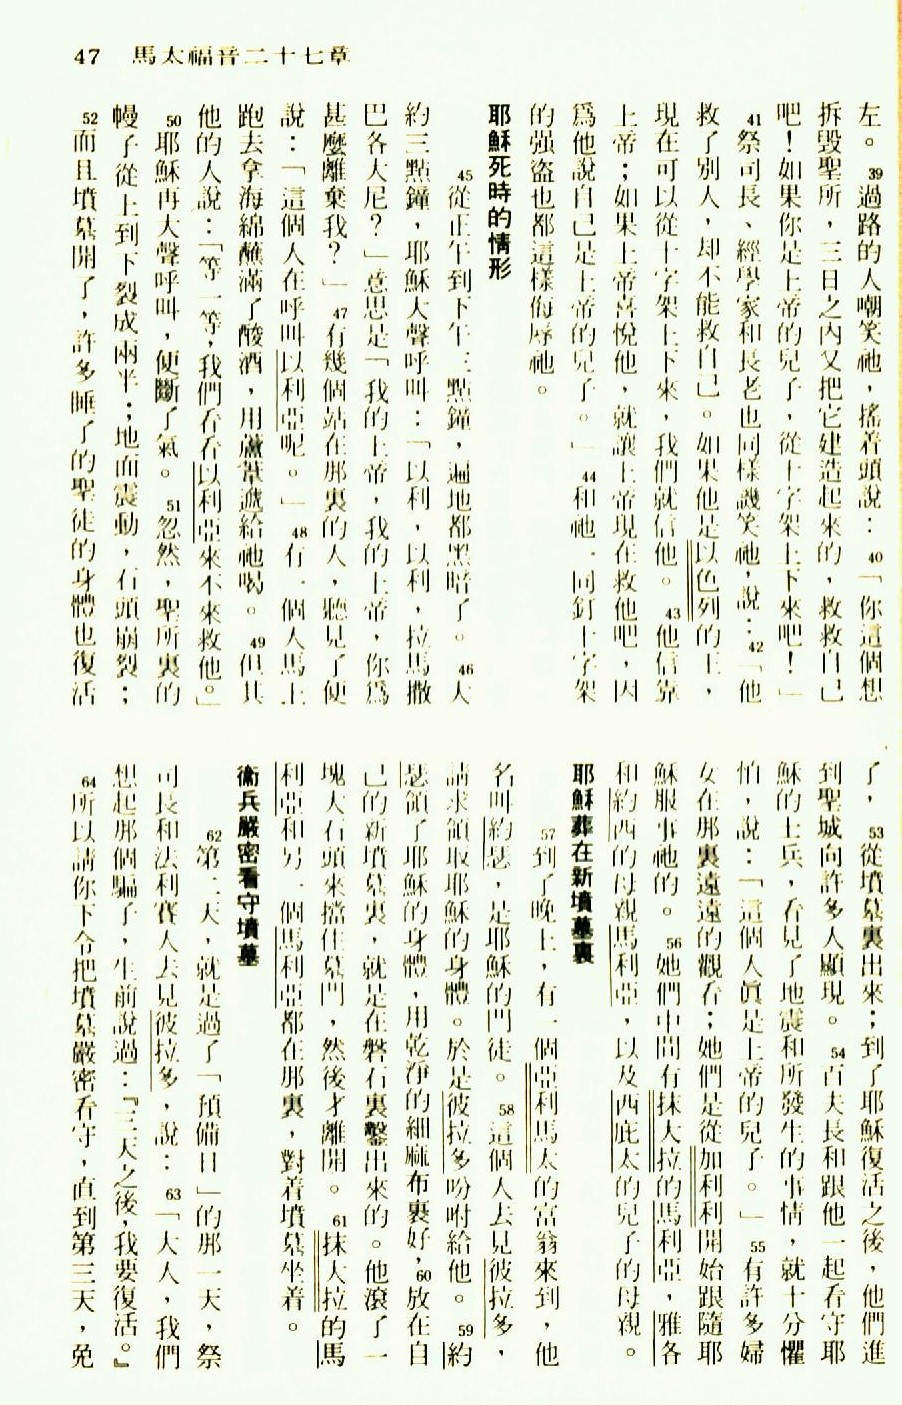 47 馬太福音二十七章
左。39過路的人嘲笑祂，搖着頭說：40「你這個想
拆毀聖所，三日之內又把它建造起來的，救救自己
吧！如果你是上帝的兒子，從十字架上下來吧！」
41祭司長、經學家和長老也同樣譏笑祂，說：42「他
救了別人，却不能救自己。如果他是以色列的王，
現在可以從十字架上下來，我們就信他。43他信靠
上帝；如果上帝喜悅他，就讓上帝現在救他吧，因
爲他說自己是上帝的兒子。」44和祂一同釘十字架
的强盜也都這樣侮辱祂。
耶穌死時的情形
45從正午到下午三點鐘，遍地都黑暗了。46大
約三點鐘，耶穌大聲呼叫：「以利，以利，拉馬撒
巴各大尼？」意思是「我的上帝，我的上帝，你爲
甚麼離棄我？」47有幾個站在那裏的人，聽見了便
說：「這個人在呼叫以利亞呢。」48有一個人馬上
跑去拿海綿蘸滿了酸酒，用蘆葦遞給祂喝。49但其
他的人說：「等一等，我們看看以利亞來不來救他。」
50耶穌再大聲呼叫，便斷了氣。51忽然，聖所裏的
幔子從上到下裂成兩半；地面震動，石頭崩裂；
52而且墳墓開了，許多睡了的聖徒的身體也復活
了，53從墳墓裏出來；到了耶穌復活之後，他們進
到聖城向許多人顯現。54百夫長和跟他一起看守耶
穌的士兵，看見了地震和所發生的事情，就十分懼
怕，說：「這個人眞是上帝的兒子。」55有許多婦
女在那裏遠遠的觀看；她們是從加利利開始跟隨耶
穌服事祂的。56她們中間有抹大拉的馬利亞，雅各
和約西的母親馬利亞，以及西庇太的兒子的母親。
耶穌葬在新墳墓裏
57到了晚上，有一個亞利馬太的富翁來到，他
名叫約瑟，是耶穌的門徒。58這個人去見彼拉多，
請求領取耶穌的身體。於是彼拉多吩咐給他。59約
瑟領了耶穌的身體，用乾淨的細麻布裹好，60放在自
己的新墳墓裏，就是在磐石裏鑿出來的。他滾了一
塊大石頭來擋住墓門，然後才離開。61抹大拉的馬
利亞和另一個馬利亞都在那裏，對着墳墓坐着。
衞兵嚴密看守墳墓
62第二天，就是過了「預備日」的那一天，祭
司長和法利賽人去見彼拉多，說：63「大人，我們
想起那個騙子，生前說過：『三天之後，我要復活。』
64所以請你下令把墳墓嚴密看守，直到第三天，免